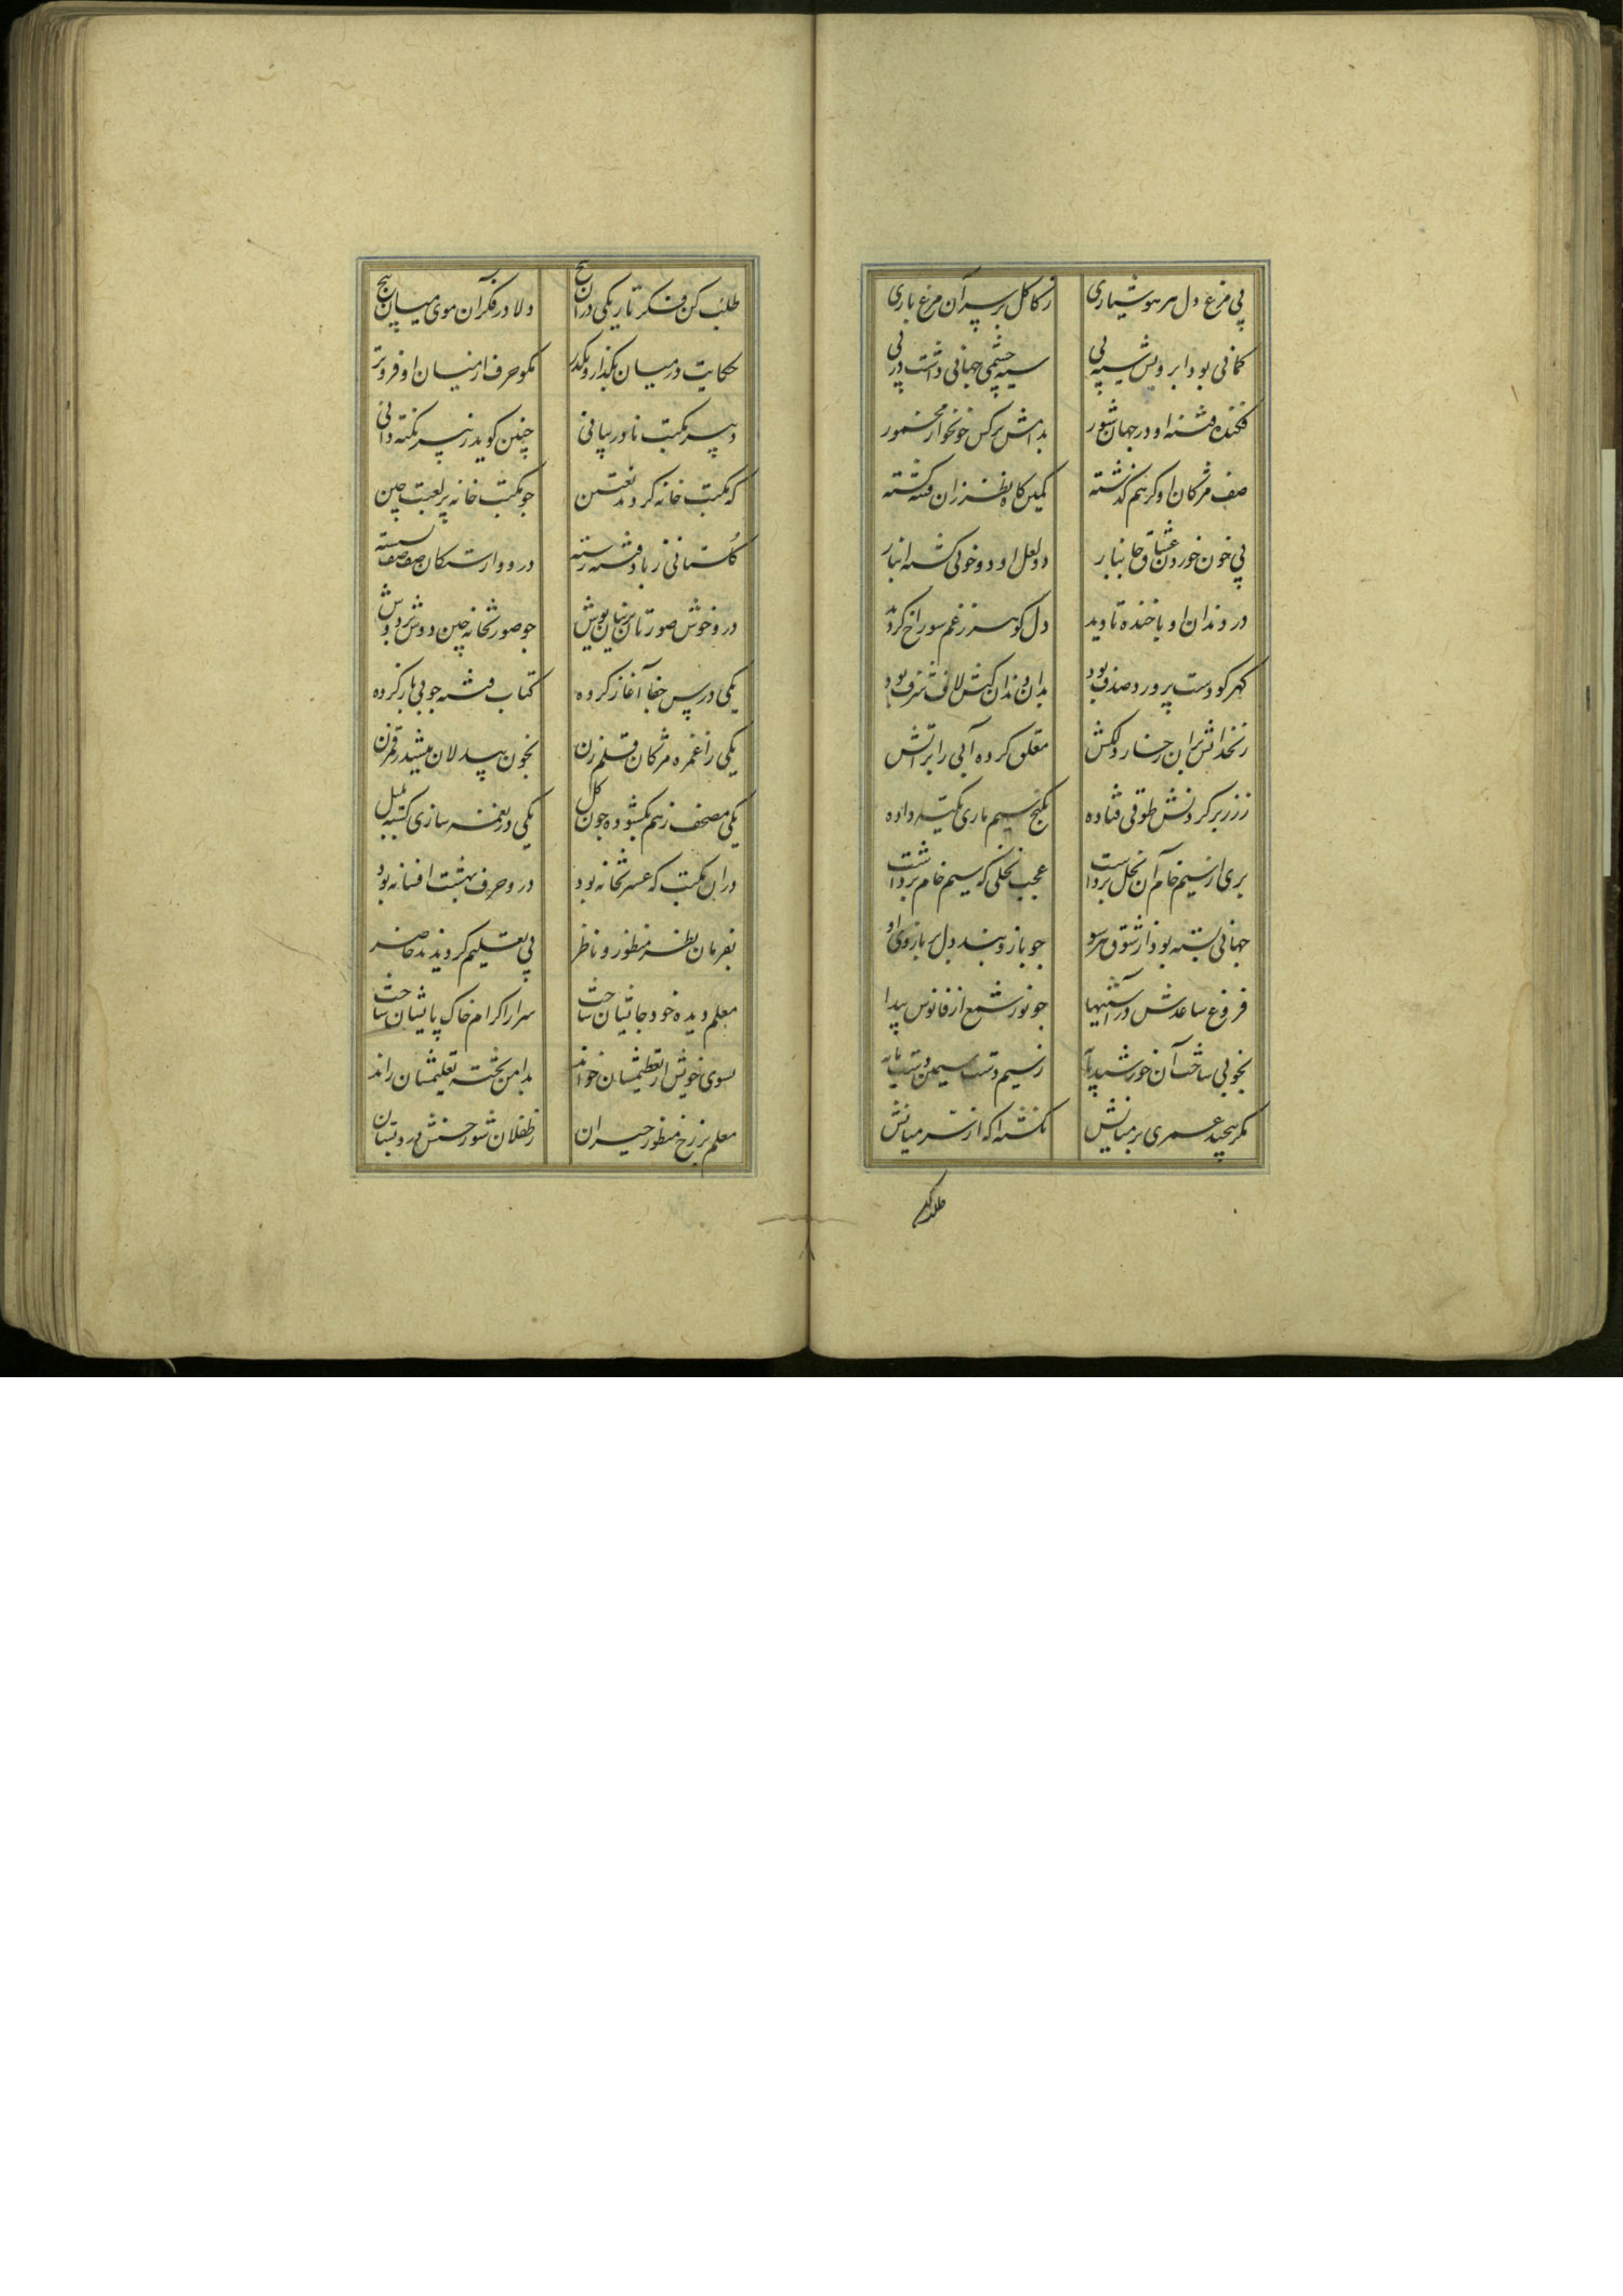 پی مرغ دل هر هوشیاری ز کاکل بر سر آن مرغ باری
کمانی بود ابرویش سیه پی سیه چشمی جهانی داشت در پی
فکنده فتنه او در جهان شور بدامش نرکس خونخوار مخمور
صف مژکان او کز هم کذشته کمین کاه نظر زان فتنه کشته
پی خون خوردن عشاق جانبار دو لعل او دو خونی کشته انبار
در دندان او با خنده تا دید دل کوهر ز غم سوراخ کردید
کهر کو دست پرورد صدف بود بدان دندان کیش لاف شرف بود
زنخدانش بر ان رخسار دلکش معلق کرده آبی را بر آتش
ز زر بر کردنش طوقی فتاده بکنج سیم ماری تکیه داده
بری از سیم خام آن نخل برداشت عجب نخلی که سیم خام بر داشت
جهانی بسته بود از شوق هر سو جو بازوبند دل بر بازوی او
فروغ ساعدش در آستینها جو نور شمع از فانوس پیدا
بخوبی ساخت آن خورشید پایه ز سیم دست سیمین دست مایه
مکر پیچید عمری بر میانش نکشت اکه از سر میانش
طلب کن
طلب کن فکر تاریکی در ان پیچ دلا در فکر آن موی میان پیچ
حکایت در میان بکذار و بکذر مکو حرف از میان او فروتر
دبیر مکتب نادر بیانی چنین کوید ز پیر نکته دانی
که مکتب خانه کردند تعیین جو مکتب خانه پر لعبت چین
کلستانی ز باد فتنه رسته درو وارستکان صف صف نشسته
درو خوش صورتان پرنیان پوش جو صورتخانه چین دوش بر دوش
یکی درس جفا آغاز کرده کتاب فتنه جویی باز کرده
یکی را غمزه مژکان قلم زن بخون بیدلان میشد رقم زن
یکی مصحف ز هم بکشوده جون کل یکی در نغمه سازی کشته بلبل
در ان مکتب که عشرتخانه بود درو حرف بهشت افسانه بود
بفرمان نظر منظور و ناظر پی تعلیم کردیدند حاضر
معلم دیده خود جایشان ساخت سر از اکرام خاک پایشان ساخت
بسوی خویش از تعظیمشان خواند بدامن تخته تعلیمشان راند
معلم بر رخ منظور حیران ز طفلان شور حسنش در دبستان